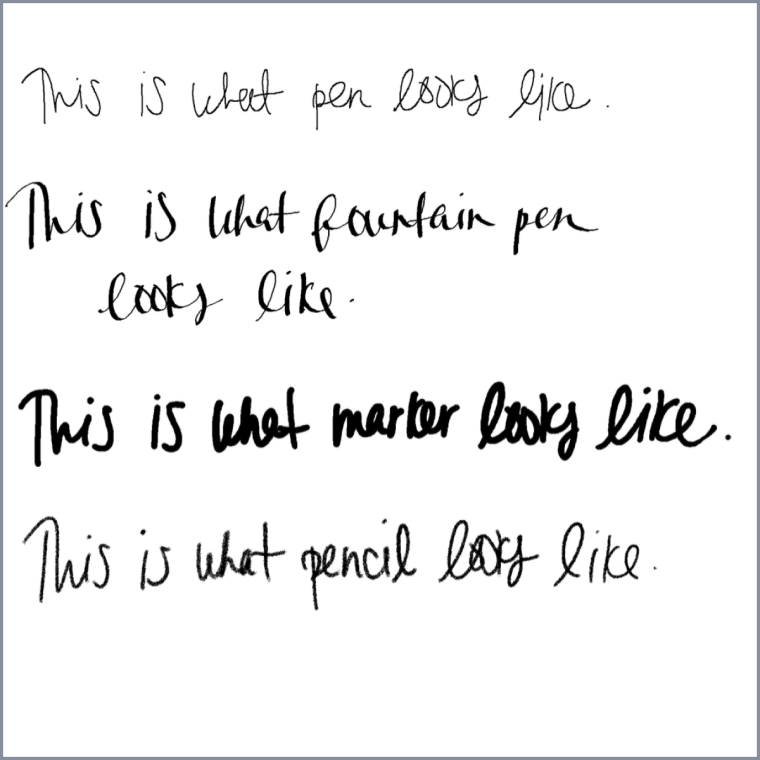 This is what pen looks like.
This is what fountain pen
looks like.
This is what marker looks like.
This is what pencil looks like.